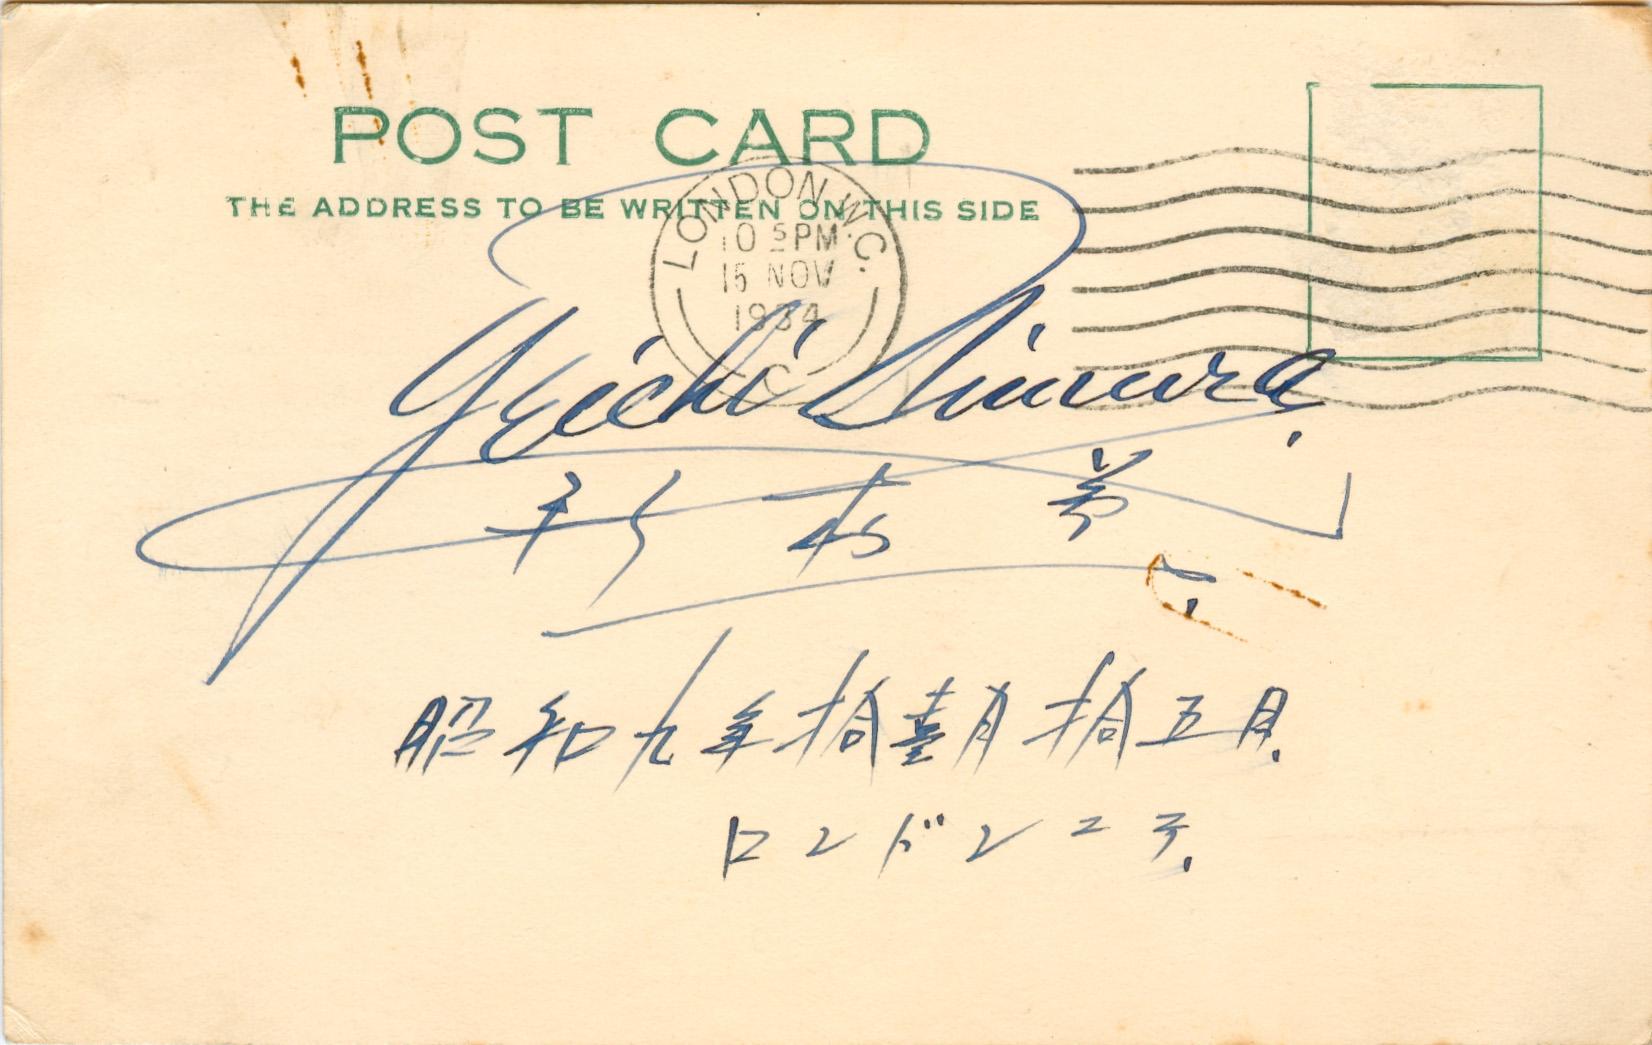 POST CARD
THE ADDRESS TO BE WRITTEN ON THIS SIDE
LONDON. W.C.
10 5 PM
15 NOV
1934
C
Yeichi Nimura
昭和九年拾壹月拾五日.
ロンドンニテ.